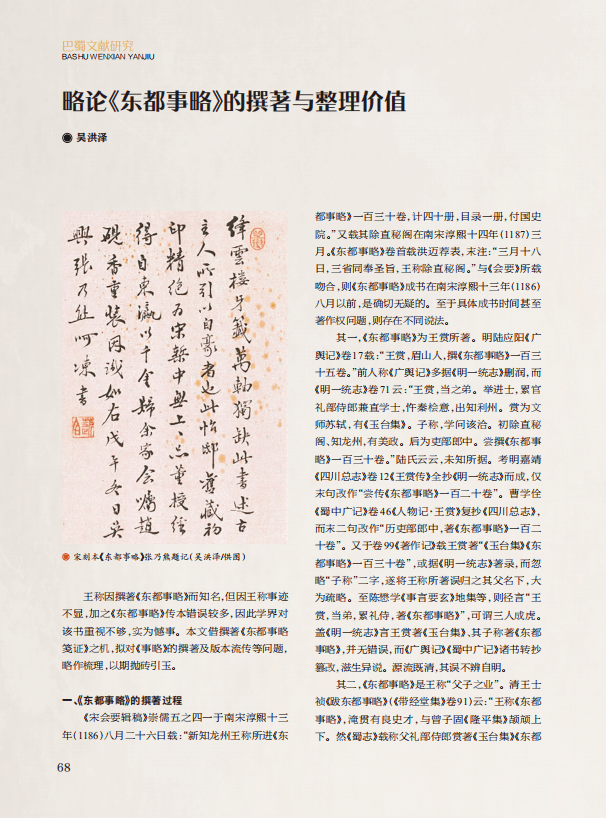 巴蜀文献研究
BASHU WENXIAN YANJIU
略论《东都事略》的撰著与整理价值
◉ 吴洪泽
绛云楼牙籤万轴独缺此书述古
主人所引以自豪者也此怡邸旧藏初
印精绝为宋椠中无上
得自东瀛以千金归余家
砚香重装因识如右戊午冬日吴
兴张乃熊呵冻书
◉ 宋刻本《东都事略》张乃熊题记(吴洪泽/供图)
王称因撰著《东都事略》而知名,但因王称事迹
不显,加之《东都事略》传本错误较多,因此学界对
该书重视不够,实为憾事。本文借撰著《东都事略
笺证》之机,拟对《事略》的撰著及版本流传等问题,
略作梳理,以期抛砖引玉。
一、《东都事略》的撰著过程
《宋会要辑稿》崇儒五之四一于南宋淳熙十三
年(1186)八月二十六日载:“新知龙州王称所进《东
都事略》一百三十卷,计四十册,目录一册,付国史
院。”又载其除直秘阁在南宋淳熙十四年(1187)三
月。《东都事略》卷首载洪迈荐表,末注:“三月十八
日,三省同奉圣旨,王称除直秘阁。”与《会要》所载
吻合,则《东都事略》成书在南宋淳熙十三年(1186)
八月以前,是确切无疑的。至于具体成书时间甚至
著作权问题,则存在不同说法。
其一,《东都事略》为王赏所著。明陆应阳《广
舆记》卷17载:“王赏,眉山人,撰《东都事略》一百三
十五卷。”前人称《广舆记》多据《明一统志》删润,而
《明一统志》卷71云:“王赏,当之弟。举进士,累官
礼部侍郎兼直学士,忤秦桧意,出知利州。赏为文
师苏轼,有《玉台集》。子称,学问该洽。初除直秘
阁、知龙州,有美政。后为吏部郎中。尝撰《东都事
略》一百三十卷。”陆氏云云,未知所据。考明嘉靖
《四川总志》卷12《王赏传》全抄《明一统志》而成,仅
末句改作“尝传《东都事略》一百二十卷”。曹学佺
《蜀中广记》卷46《人物记·王赏》复抄《四川总志》,
而末二句改作“历吏部郎中,著《东都事略》一百二
十卷”。又于卷99《著作记》载王赏著“《玉台集》《东
都事略》一百三十卷”,或据《明一统志》著录,而忽
略“子称”二字,遂将王称所著误归之其父名下,大
为疏略。至陈懋学《事言要玄》地集等,则径言“王
赏,当弟,累礼侍,著《东都事略》”,可谓三人成虎。
盖《明一统志》言王赏著《玉台集》、其子称著《东都
事略》,并无错误,而《广舆记》《蜀中广记》诸书转抄
篡改,滋生异说。源流既清,其误不辨自明。
其二,《东都事略》是王称“父子之业”。清王士
祯《跋东都事略》(《带经堂集》卷91)云:“王称《东都
事略》,淹贯有良史才,与曾子固《隆平集》颉颃上
下。然《蜀志》载称父礼部侍郎赏著《玉台集》《东都
68